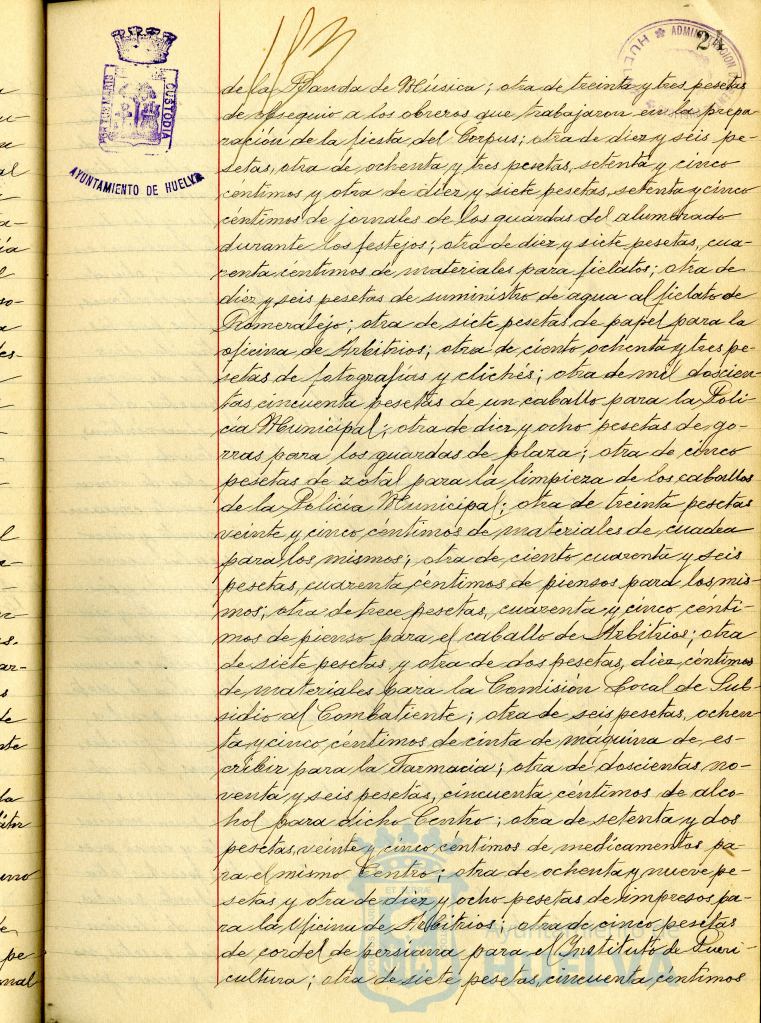 24
PORTUS MARIS
CUSTODIA
AYUNTAMIENTO DE HUELVA
de la Banda de Música; otra de treinta y tres pesetas
de obsequio a los obreros que trabajaron en la prepa
ración de la fiesta del Corpus; otra de diez y seis pe-
setas, otra de ochenta y tres pesetas, setenta y cinco
centimos y otra de diez y siete pesetas, setenta y cinco
centimos de jornales de los guardas del alumbrado
durante los festejos; otra de diez y siete pesetas, cua-
renta céntimos de materiales para fielatos; otra de
diez y seis pesetas de suministro de agua al fielato de
Romeralejo; otra de siete pesetas de papel para la
oficina de Arbitrios; otra de ciento ochenta y tres pe-
setas de fotografías y clichés; otra de mil doscien-
tas cincuenta pesetas de un caballo para la Poli-
cia Municipal; otra de diez y ocho pesetas de go-
rras para los guardas de plaza; otra de cinco
pesetas de zotal para la limpieza de los caballos
de la Policía Municipal; otra de treinta pesetas
veinte y cinco céntimos de materiales de cuadra
para los mismos; otra de ciento cuarenta y seis
pesetas, cuarenta céntimos de piensos para los mis-
mos; otra de trece pesetas, cuarenta y cinco cénti-
mos de pienso para el caballo de Arbitrios; otra
de siete pesetas y otra de dos pesetas, diez céntimos
de materiales para la Comisión Local de Sub-
sidio al Combatiente; otra de seis pesetas, ochen-
ta y cinco céntimos de cinta de máquina de es-
cribir para la Farmacia; otra de doscientas no-
venta y seis pesetas, cincuenta centimos de alco-
hol para dicho Centro; otra de setenta y dos
pesetas, veinte y cinco céntimos de medicamentos pa-
ra el mismo Centro; otra de ochenta y nueve pe-
setas y otra de diez y ocho pesetas de impresos pa-
ra la Oficina de Arbitrios; otra de cinco pesetas
de cordel de persiana para el Instituto de Pueri-
cultura; otra de siete pesetas, cincuenta céntimos
Ayuntamiento de
HUELVA